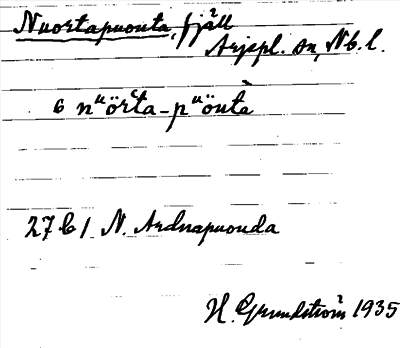 Nuortapuouta, fjäll
Arjepl. sn, Nb. l.
6 nᵘörta-pᵘöutà
27 b 1 N. Ardnapuouda
H. Grundström 1935